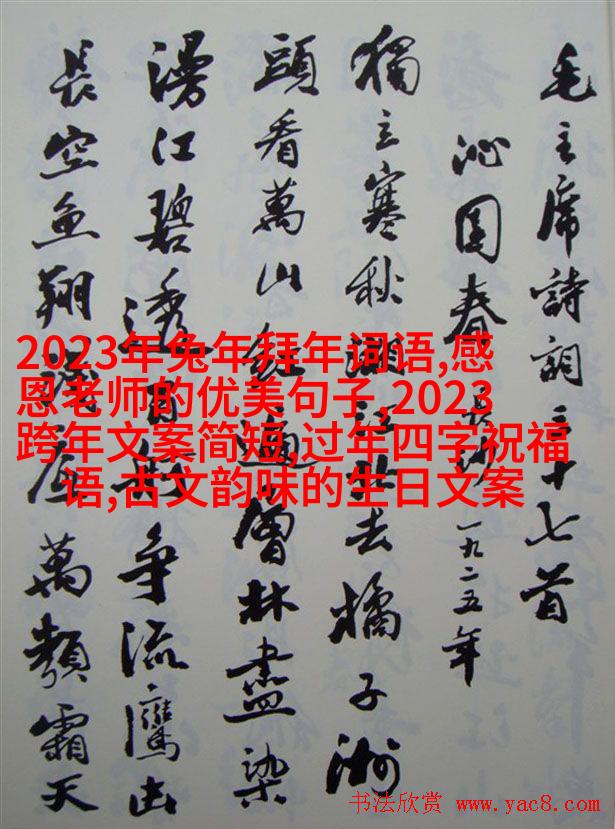 毛主席詩詞三十七首
沁园春 長沙 一九二五年
獨立寒秋湘江北去橘子洲
頭看萬山紅遍層林盡染
漫江碧透百舸争流鷹击
長空魚翔淺底萬類霜天
2023年兔年拜年词语,感
恩老师的优美句子,2023
跨年文案简短,过年四字祝福
语,古文韵味的生日文案
书法欣赏 www.yac8.com